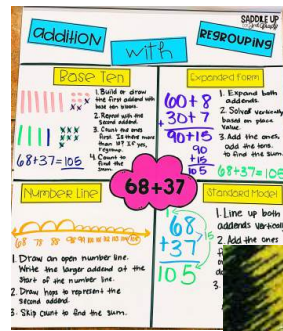 SADDLE UP
FOR 2nd Grade
addition
with
REGROUPING
Base Ten
1. Build or draw
the first addend with
base ten blocks.
2. Repeat with the
second addend.
3. Count the ones
first. Is there more
than 10? If yes,
regroup.
4. Count to
find the
sum.
68+37=105
Expanded Form
60+8
+30+7
90+15
90
+15
105
1. Expand both
addends.
2. Solve vertically
based on place
value.
3. Add the ones,
add the tens,
to find the sum.
68+37=105
68+37
Number Line
68 78 88 98
1. Draw an open number line.
Write the larger addend at the
start of the number line.
2. Draw hops to represent the
second addend.
3. Skip count to find the sum.
Standard Model
1
68
+37
105
15
1. Line up both
addends vertically
2. Add the ones
3.